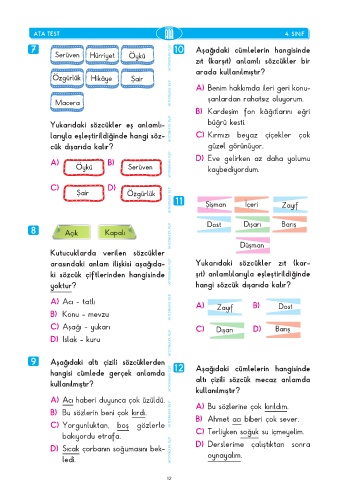 ATA TEST
4. SINIF
7
Serüven Hürriyet Öykü
Özgürlük Hikâye Şair
Macera
Yukarıdaki sözcükler eş anlamlı-
larıyla eşleştirildiğinde hangi söz-
cük dışarıda kalır?
A) Öykü B) Serüven
C) Şair D) Özgürlük
8
Açık Kapalı
Kutucuklarda verilen sözcükler
arasındaki anlam ilişkisi aşağıda-
ki sözcük çiftlerinden hangisinde
yoktur?
A) Acı - tatlı
B) Konu - mevzu
C) Aşağı - yukarı
D) Islak - kuru
9 Aşağıdaki altı çizili sözcüklerden
hangisi cümlede gerçek anlamda
kullanılmıştır?
A) Acı haberi duyunca çok üzüldü.
B) Bu sözlerin beni çok kırdı.
C) Yorgunluktan, boş gözlerle
bakıyordu etrafa.
D) Sıcak çorbanın soğumasını bek-
ledi.
10 Aşağıdaki cümlelerin hangisinde
zıt (karşıt) anlamlı sözcükler bir
arada kullanılmıştır?
A) Benim hakkımda ileri geri konu-
şanlardan rahatsız oluyorum.
B) Kardeşim fon kâğıtlarını eğri
büğrü kesti.
C) Kırmızı beyaz çiçekler çok
güzel görünüyor.
D) Eve gelirken az daha yolumu
kaybediyordum.
11
Şişman İçeri Zayıf
Dost Dışarı Barış
Düşman
Yukarıdaki sözcükler zıt (kar-
şıt) anlamlılarıyla eşleştirildiğinde
hangi sözcük dışarıda kalır?
A) Zayıf B) Dost
C) Dışarı D) Barış
12 Aşağıdaki cümlelerin hangisinde
altı çizili sözcük mecaz anlamda
kullanılmıştır?
A) Bu sözlerine çok kırıldım.
B) Ahmet acı biberi çok sever.
C) Terliyken soğuk su içmeyelim.
D) Derslerime çalıştıktan sonra
oynayalım.